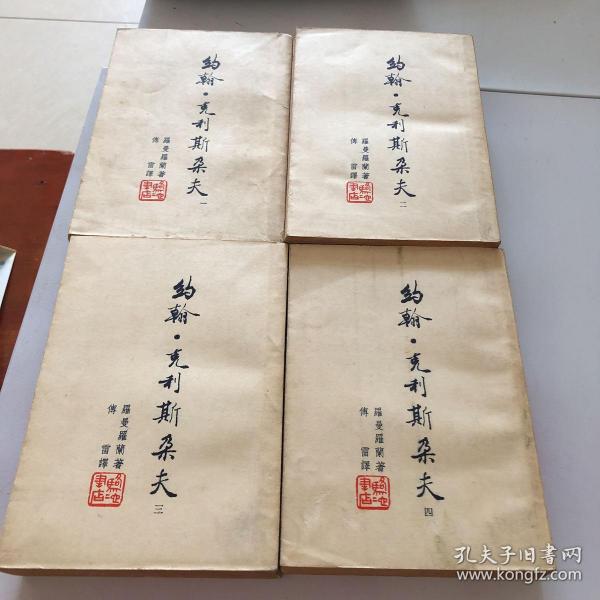 約翰·克利斯朵夫
羅曼羅蘭著
傅雷譯
一
約翰·克利斯朵夫
羅曼羅蘭著
傅雷譯
二
約翰·克利斯朵夫
羅曼羅蘭著
傅雷譯
三
約翰·克利斯朵夫
羅曼羅蘭著
傅雷譯
四
孔夫子旧书网
www.kongfz.com